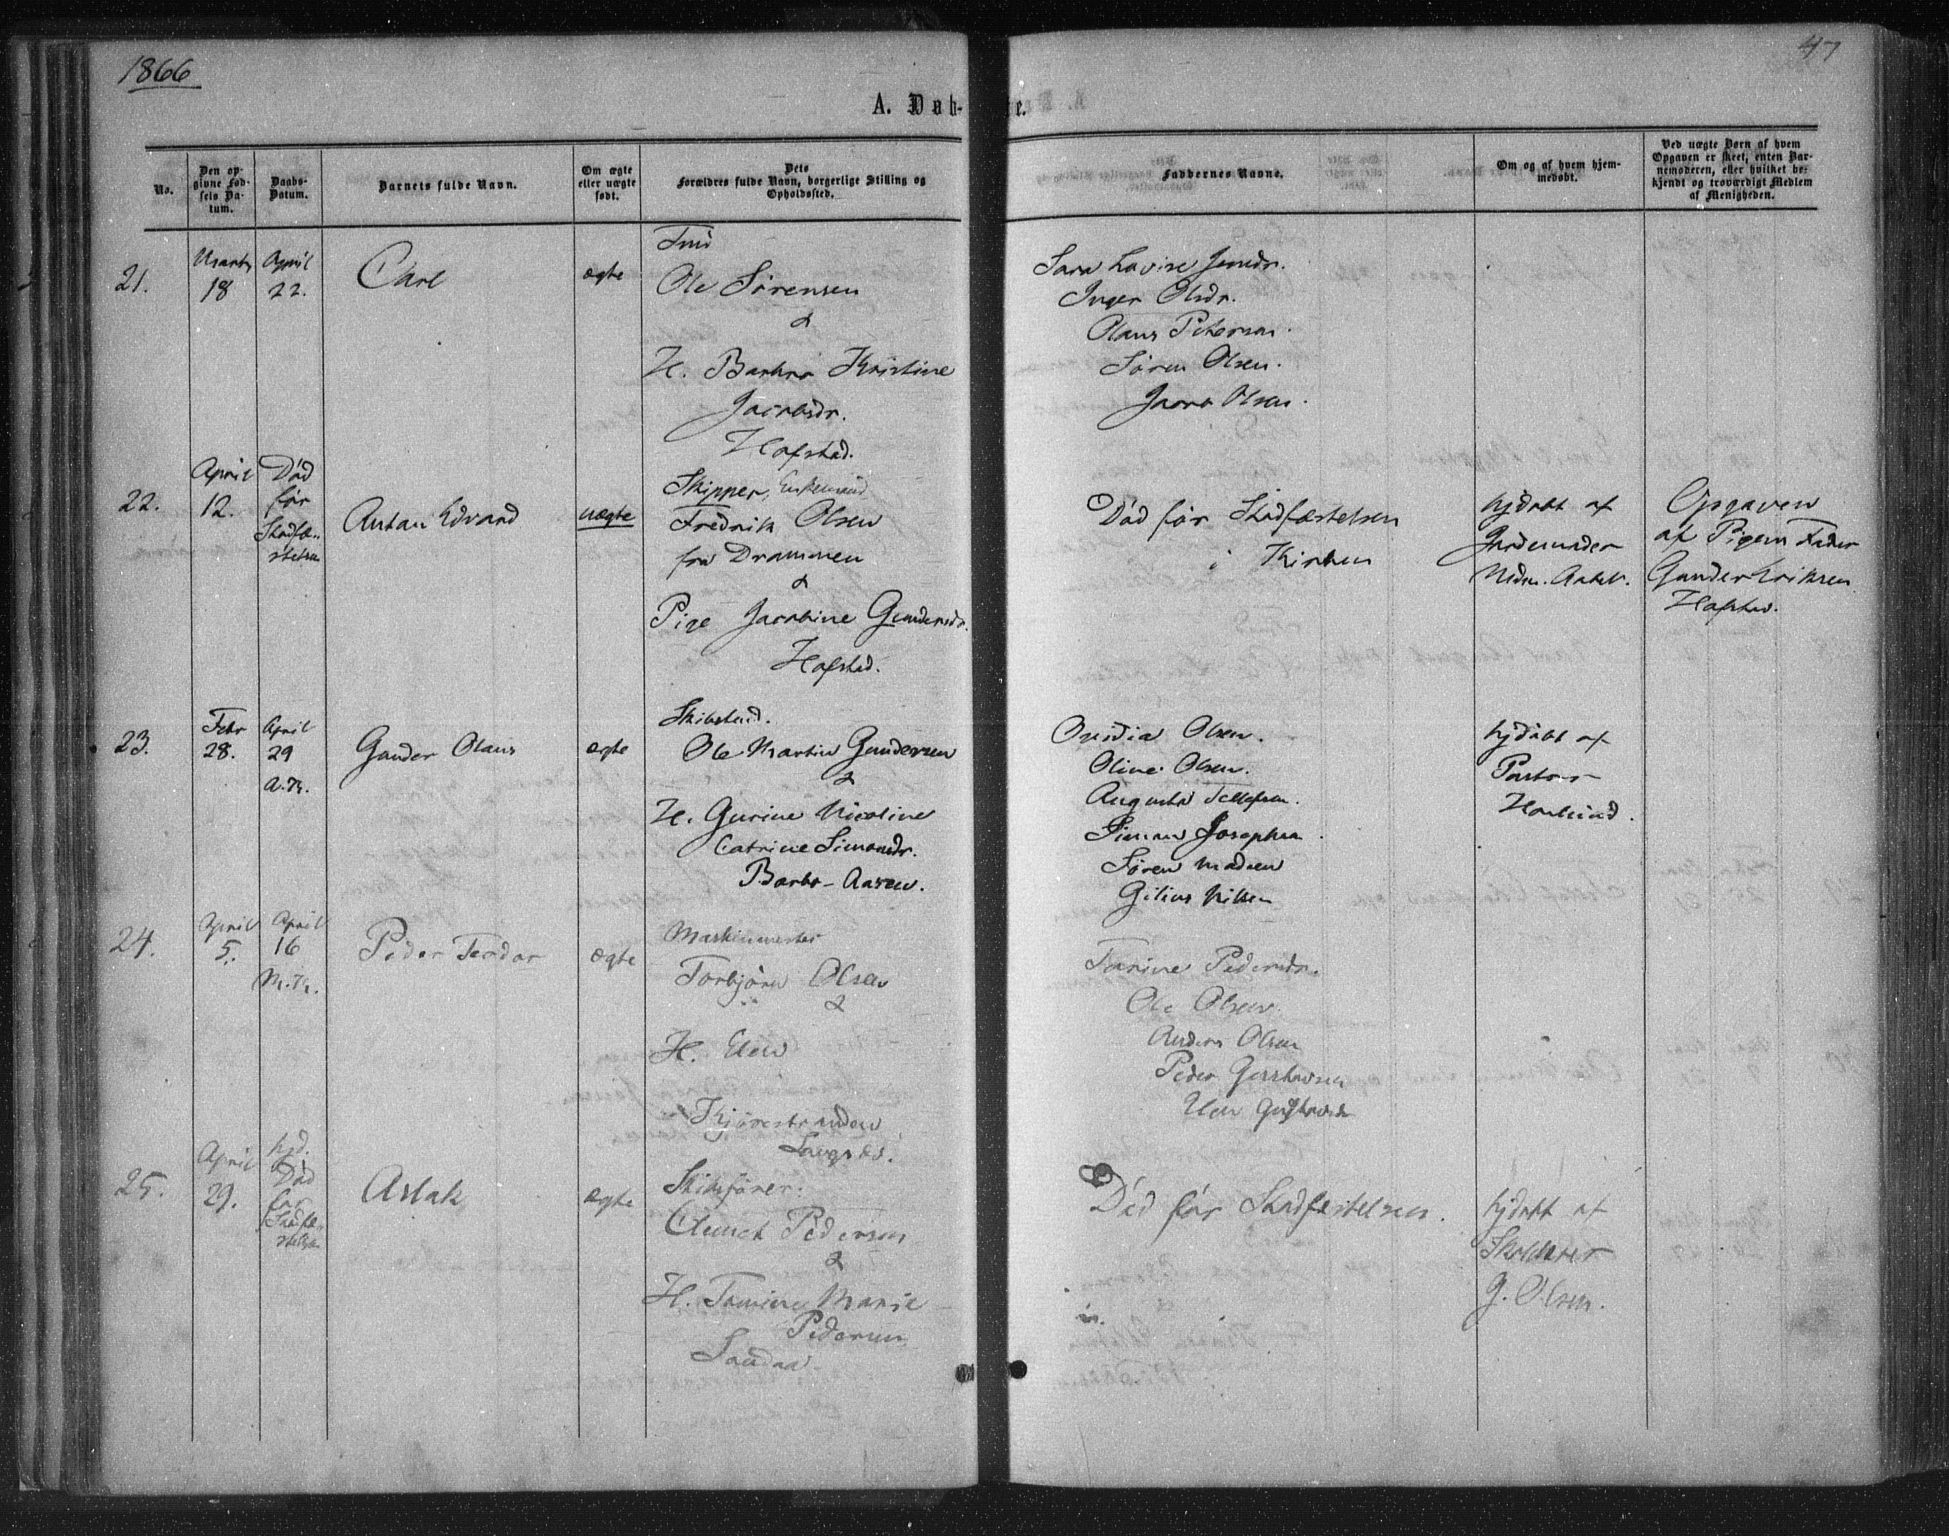 1866
47
A. Døb-
e.
No.
Den op-
givne Fød-
sels Da-
tum.
Daabs-
Datum.
Barnets fulde Navn.
Om ægte
eller uægte
født.
Dets
Forældres fulde Navn, borgerlige Stilling og
Opholdssted.
Faddernes Navne.
Om og af hvem hjem-
medøbt.
Ved uægte Børn af hvem
Opgaven er skeet, enten Bar-
nemoderen, eller hvilket be-
kjendt og troværdigt Medlem
af Menigheden.
21.
Marts
18
April
22.
Carl
ægte
Ole Sørensen
&
H. Barbro Kristine
Jacobsdr.
Hofstad.
Inger Olsdr.
Olaus Peterson.
Søren Olsen.
Olsen.
22.
April
12.
Død
før
Stadfæ-
stelsen
Antan Edvard
uægte
Skipper, Enkemand
Fredrik Olsen
fra Drammen
&
Pige Jacobine Gundersdr.
Hofstad.
Død før Stadfæstelsen
i Kirken
hjdøbt af
Jordemoder
Opgaven
af Pigens Fader
Gunder Eriksen
Hofstad.
23.
Febr
28.
April
29
A.K.
Gunder Olaus
ægte
Ole Martin Gundersen
&
H. Gurine Nicoline
Catrine Simonsdr.
Barbo-Aasen.
Olsen.
Oline Olsen.
Augusta Tellefsen.
Simon Josephsen.
Søren Madsen
Nilsen
hjdøbt af
Pastor
24.
April
5.
April
16
M.K.
Peder Teodor
ægte
Maskinmester
Torbjørn Olsen
&
H. Elen
Kjørestranden
Tarine Pedersdr.
Ole Olsen
Anders Olsen
Peder Gustavsen
25.
April
29.
hjd.
Død
før
Stadfæ-
stelsen
Aslak
ægte
Skibsfører.
Clemet Pederson
&
H. Tomine Marie
Pedersen
Sandaa
Død før Stadfæstelsen.
hjdøbt af
Skolelærer
G. Olsen.